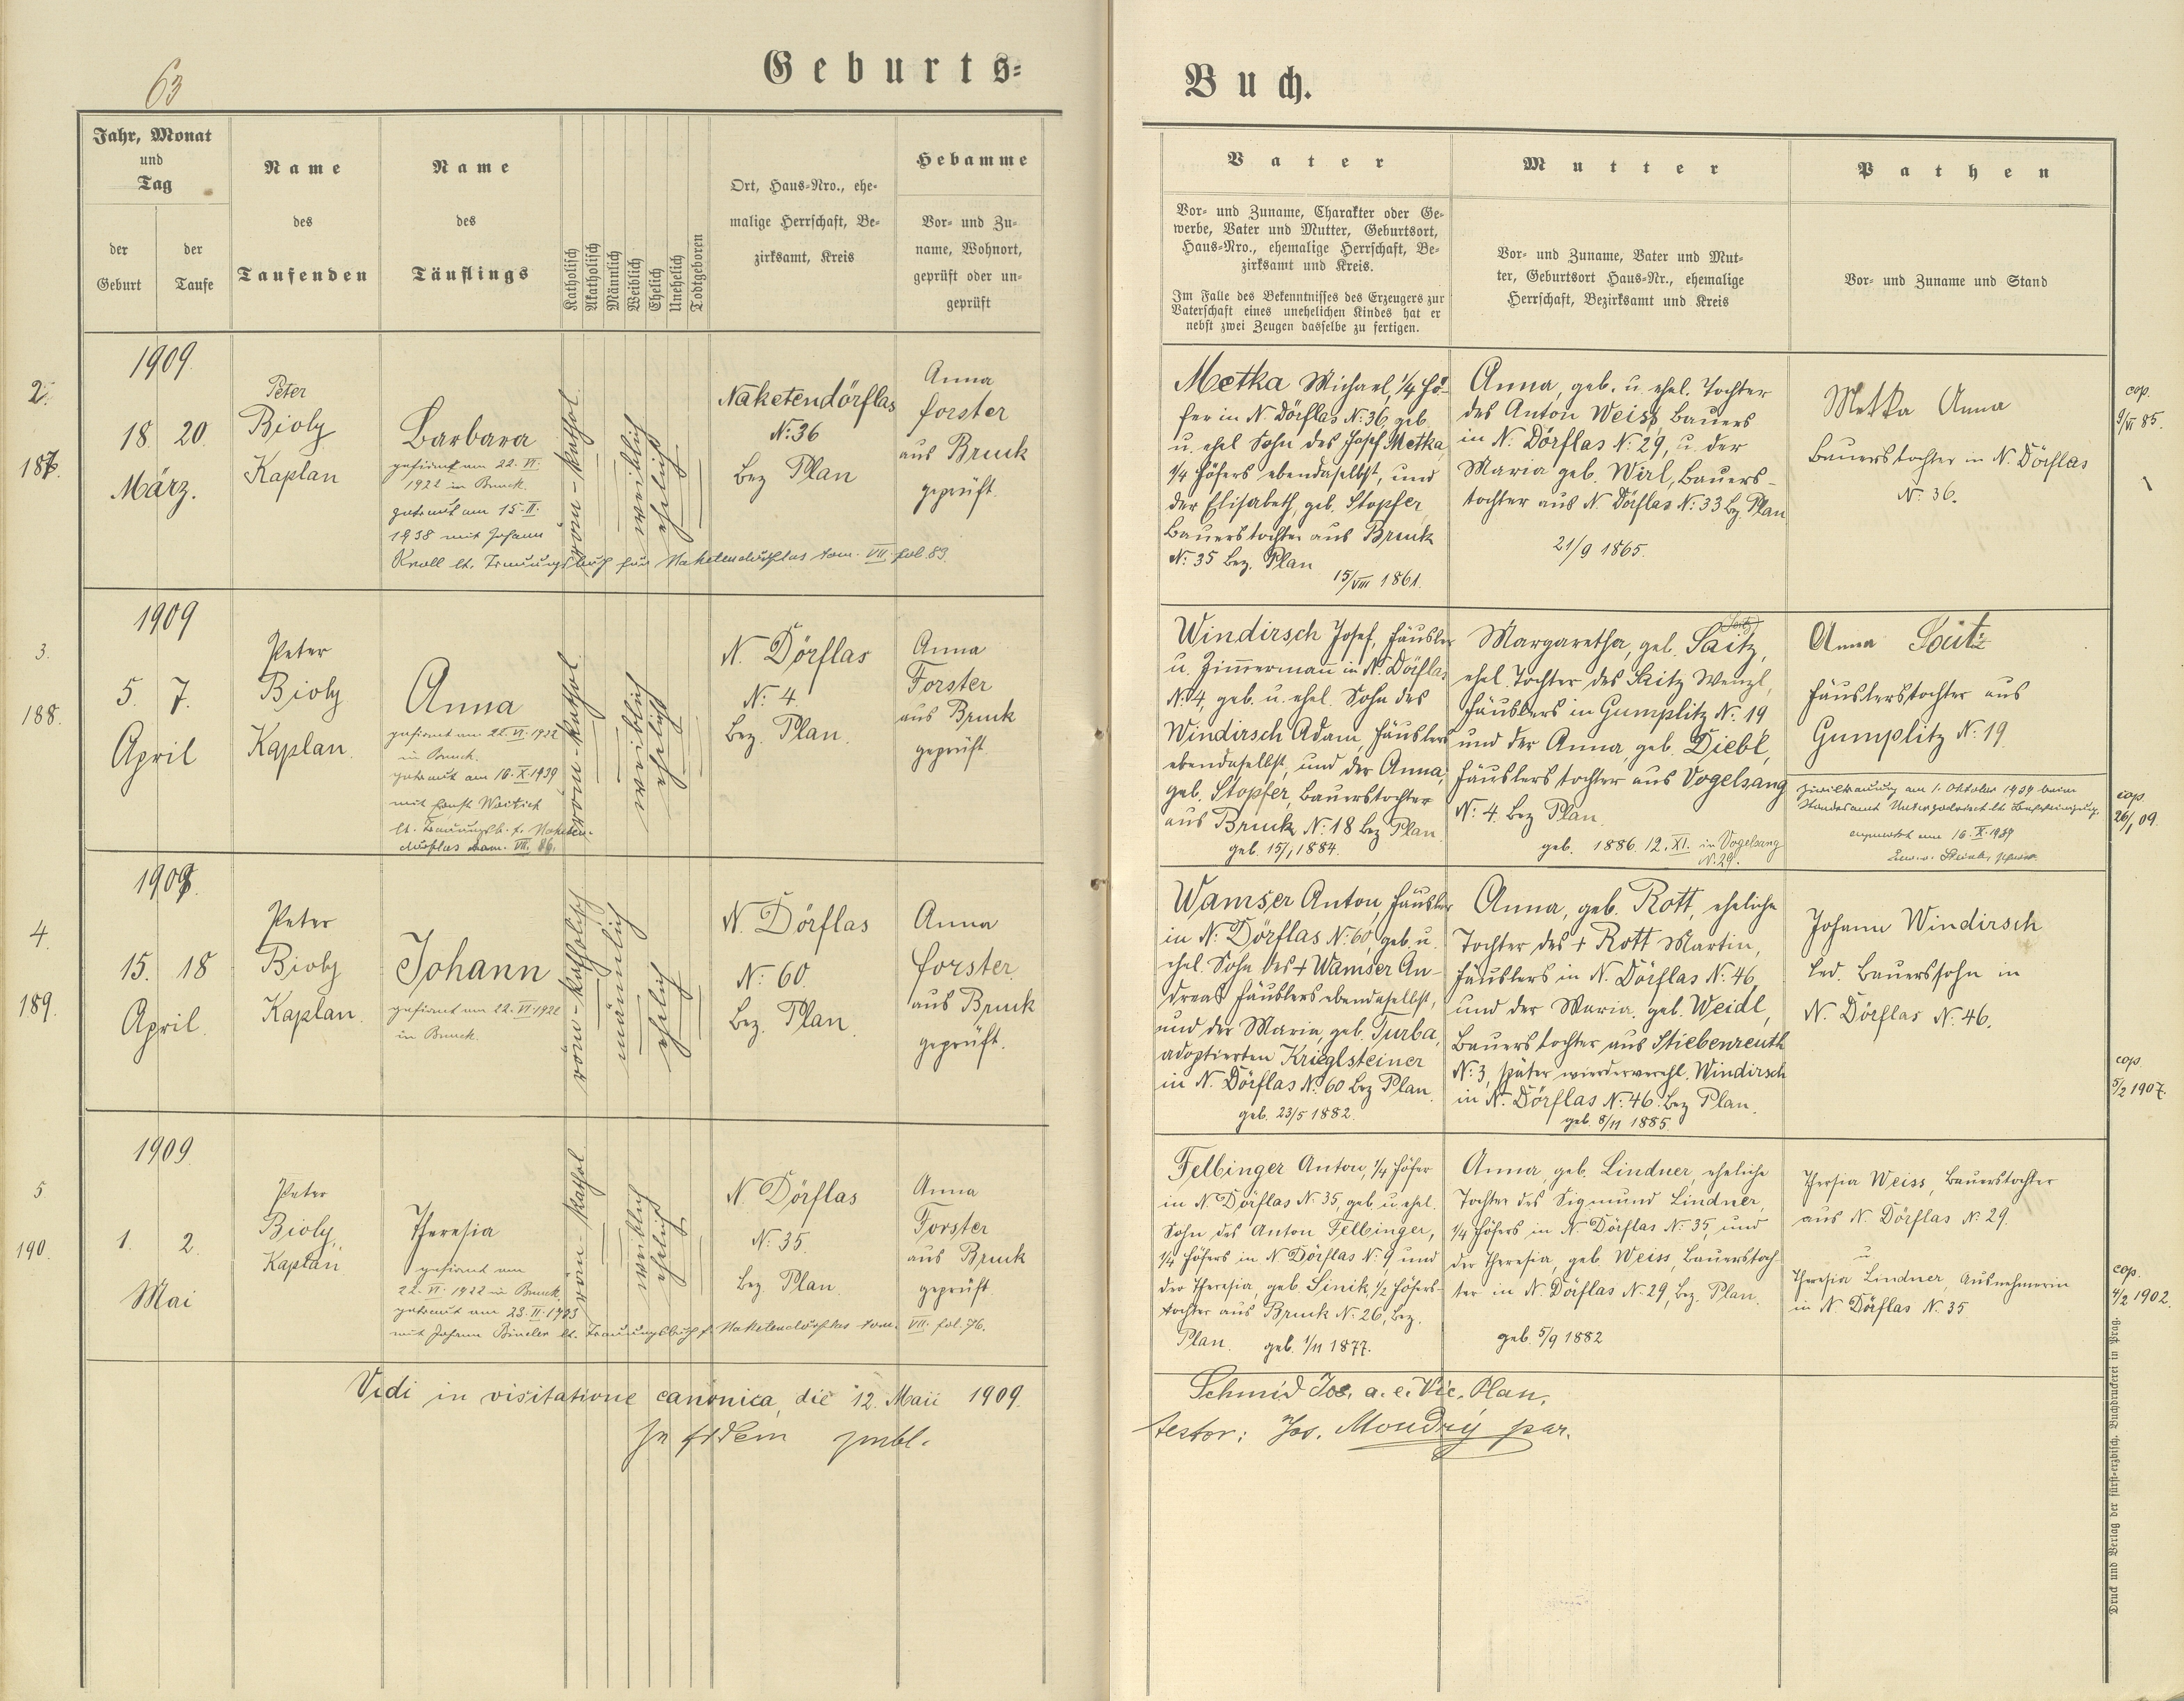 63
Geburts=
Jahr, Monat
und
Tag
der
Geburt
der
Taufe
Name
des
Taufenden
Name
des
Täuflings
Katholisch
Akatholisch
Männlich
Weiblich
Ehelich
Unehelich
Todtgeboren
Ort, Haus=Nro., ehe=
malige Herrschaft, Be=
zirksamt, Kreis
Hebamme
Vor= und Zu=
name, Wohnort,
geprüft oder un=
geprüft
2.
187.
1909.
18. 20.
März.
Peter
Bioly
Kaplan
Barbara
gefirmt am 22. VI.
1922 in Bruck.
getraut am 15. II.
1938 mit Johann
Knoll lt. Trauungsbuch für Naketendörflas tom. VII. fol. 83.
röm-kathol.
weiblich
ehelich
Naketendörflas
N: 36
Bez Plan
Anna
Forster
aus Bruck
geprüft.
3.
188.
1909
5. 7.
April
Peter
Bioly
Kaplan.
Anna
gefirmt am 22. VI. 1922
in Bruck.
getraut am 16. X. 1939
mit
lt. Trauungsb. f. Naketen-
dörflas tom. VII. 86.
röm-kathol.
weiblich
ehelich
N. Dörflas
N: 4
Bez. Plan.
Anna
Forster
aus Bruck
geprüft.
4.
189.
1909.
15. 18
April.
Peter
Bioly
Kaplan.
Johann
gefirmt am 22. VI. 1922
in Bruck.
röm-katholisch
männlich
ehelich
N. Dörflas
N: 60.
Bez. Plan.
Anna
Forster
aus Bruck
geprüft.
5
190.
1909
1. 2.
Mai
Peter
Bioly,
Kaplan
Theresia
gefirmt am
22. VI. 1922 in Bruck.
getraut am 23. II. 1933
mit Johann Bindler lt. Trauungsbuch f. Naketendörflas tom. VII. fol. 76.
röm-kathol.
weiblich
ehelich
N. Dörflas
N: 35.
Bez Plan.
Anna
Forster
aus Bruck
geprüft.
Vidi in visitatione canonica, die 12. Maii 1909.
In fidem publ.
Buch.
Vater
Vor= und Zuname, Charakter oder Ge=
werbe, Vater und Mutter, Geburtsort,
Haus=Nro., ehemalige Herrschaft, Be=
zirksamt und Kreis.
Im Falle des Bekenntnisses des Erzeugers zur
Vaterschaft eines unehelichen Kindes hat er
nebst zwei Zeugen dasselbe zu fertigen.
Mutter
Vor= und Zuname, Vater und Mut=
ter, Geburtsort Haus=Nr., ehemalige
Herrschaft, Bezirksamt und Kreis
Pathen
Vor= und Zuname und Stand
Metka Michael, 1/4 Hö-
fer in N Dörflas N: 36, geb.
u. ehel Sohn des Josef Metka,
1/4 Höfers ebendaselbst, und
der Elisabeth, geb. Stopfer,
Bauerstochter aus Bruck
N: 35 Bez. Plan
15/VIII 1861.
Anna, geb. u. ehel. Tochter
des Anton Weiss, Bauers
in N. Dörflas N: 29, u. der
Maria geb. Wirl, Bauers-
tochter aus N. Dörflas N: 33 Bz. Plan
21/9 1865.
Metka Anna
Bauerstochter in N. Dörflas
N: 36.
cop.
9/VI 85.
Windirsch Josef, Häusler
u. Zimmermann in N. Dörflas
N: 4, geb. u. ehel. Sohn des
Windirsch Adam, Häuslers
ebendaselbst, und der Anna,
geb. Stopfer, Bauerstochter
aus Bruck N: 18 Bez Plan.
geb. 15/1 1884.
(Seitz)
Margaretha, geb. Saitz,
ehel. Tochter des Saitz Wenzl,
Häuslers in Gumplitz N: 19
und der Anna, geb. Diebl,
Häuslerstochter aus Vogelsang
N: 4. Bez Plan.
geb. 1886. 12. XI. in Vogelsang
N. 29.
Anna Seitz
Häuslerstochter aus
Gumplitz N: 19.
Ziviltrauung am 1. Oktober 1939 beim
Standesamt
angemerkt am 16. X. 1939
cop.
26/1 09.
Wamser Anton, Häusler
in N: Dörflas N: 60, geb. u.
ehel. Sohn des + Wamser An-
dreas Häuslers ebendaselbst,
und der Maria, geb. Turba,
adoptierten Krieglsteiner
in N. Dörflas N: 60 Bez Plan.
geb. 23/5 1882.
Anna, geb. Rott, eheliche
Tochter des + Rott Martin,
Häuslers in N. Dörflas N: 46,
und der Maria. geb. Weidl,
Bauerstochter aus Stiebenreuth
N: 3, später wiederverehl. Windirsch
in N. Dörflas N: 46. Bez Plan.
geb. 8/11 1885.
Johann Windirsch
led. Bauerssohn in
N. Dörflas N: 46.
cop.
5/2 1907.
Felbinger Anton, 1/4 Höfer
in N. Dörflas N: 35, geb. u. ehel.
Sohn des Anton Felbinger,
1/4 Höfers in N Dörflas N: 9 und
der Theresia, geb. Sinik, 1/2 Höfers-
tochter aus Bruck N: 26, Bez.
Plan. geb. 1/11 1877.
Anna, geb. Lindner, eheliche
Tochter des Sigmund Lindner,
1/4 Höfers in N. Dörflas N: 35, und
der Theresia, geb. Weiss, Bauerstoch-
ter in N. Dörflas N: 29, Bez. Plan.
geb. 5/9 1882
Thersia Weiss, Bauerstochter
aus N. Dörflas N: 29.
u.
Theresia Lindner, Ausnehmerin
in N. Dörflas N: 35
cop.
4/2 1902.
Schmid Jos. a. e. Vic. Plan.
testor: Jos. Moudrý par.
Druck und Verlag der fürst=erzbisch. Buchdruckerei in Prag.